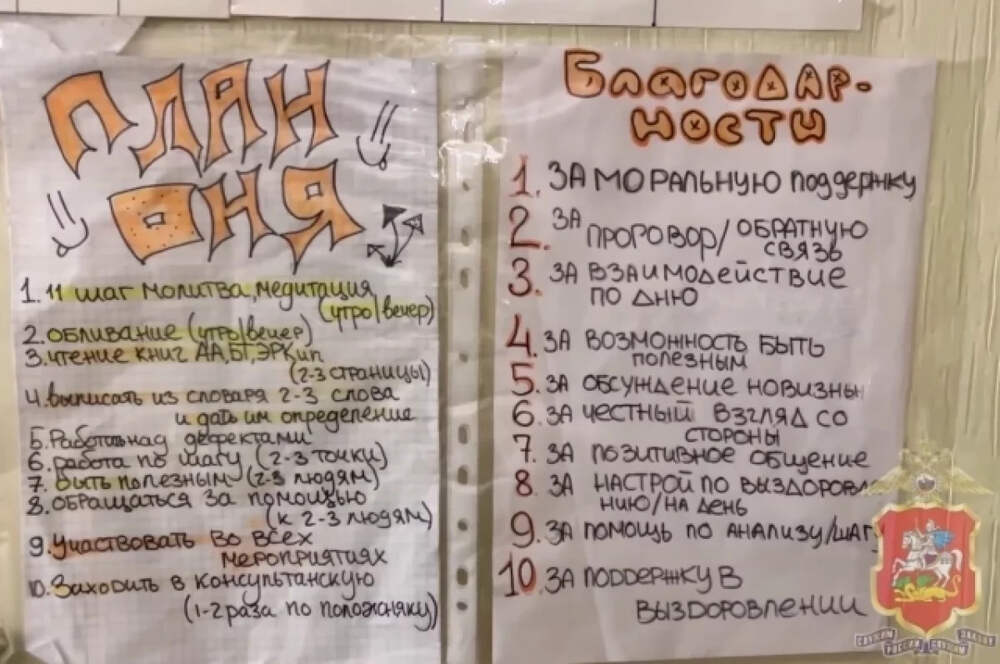 ПЛАН
ДНЯ
1. 11 шаг молитва, медитация
(утро/вечер)
2. обливание (утро/вечер)
3. чтение книг АА, БТ, ЭРКип
(2-3 страницы)
4. выписать из словаря 2-3 слова
и дать им определение
5. Работа над дефектами
6. работа по шагу (2-3 точки)
7. быть полезным (2-3 людям)
8. обращаться за помощью
(к 2-3 людям)
9. Участвовать во всех
мероприятиях
10. Заходить в консультанскую
(1-2 раза по положняку)
Благодар-
ности
1. ЗА МОРАЛЬНУЮ поддержку
2. ЗА ПРОГОВОР/ ОБРАТНУЮ
СВЯЗЬ
3. ЗА ВЗАИМОДЕЙСТВИЕ
ПО ДНЮ
4. ЗА ВОЗМОЖНОСТЬ БЫТЬ
ПОЛЕЗНЫМ
5. ЗА ОБСУЖДЕНИЕ НОВИЗНЫ
6. ЗА ЧЕСТНЫЙ ВЗГЛЯД СО
СТОРОНЫ
7. ЗА ПОЗИТИВНОЕ ОБЩЕНИЕ
8. ЗА НАСТРОЙ ПО ВЫЗДОРОВЛ
НИЮ/НА ДЕНЬ
9. ЗА ПОМОЩЬ ПО АНАЛИЗУ/ШАГ
10. ЗА ПОДДЕРЖКУ В
ВЫЗДОРОВЛЕНИИ
СЛУЖИМ РОССИИ СЛУЖИМ ЗАКОНУ